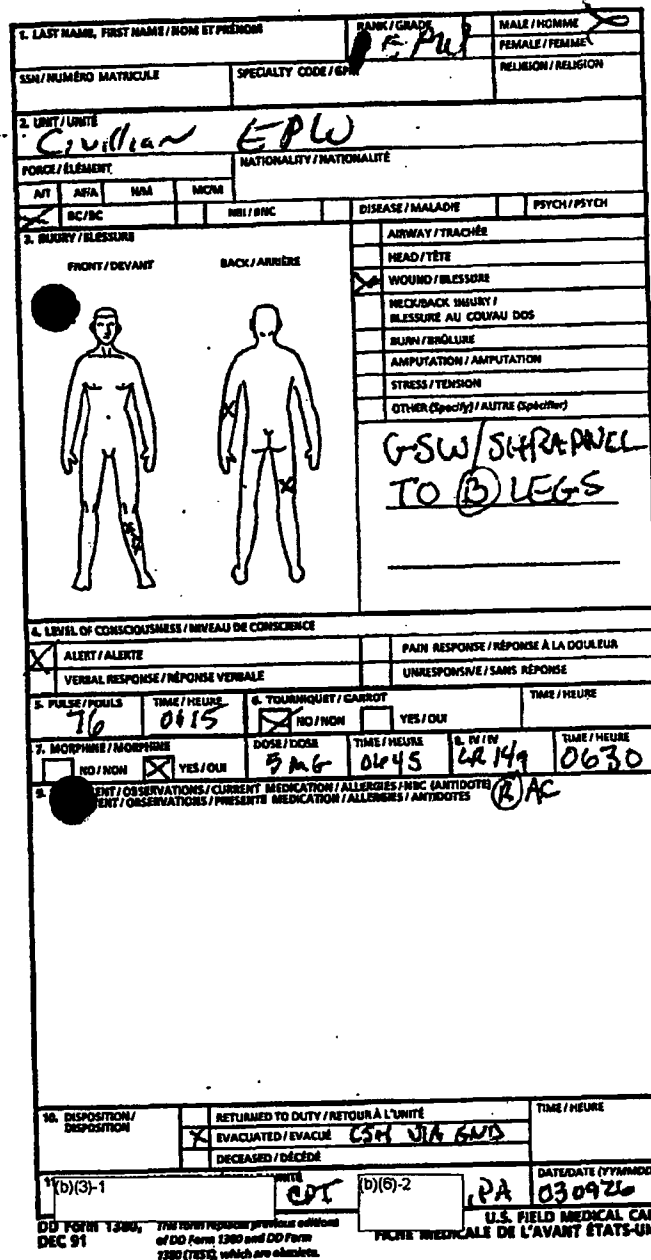 1. LAST NAME, FIRST NAME / NOM ET PRÉNOM
RANK / GRADE
MALE / HOMME
FEMALE / FEMME
SSN / NUMÉRO MATRICULE
SPECIALTY CODE /
RELIGION / RELIGION
2. UNIT / UNITÉ
Civillian EPW
FORCE / ÉLÉMENT
NATIONALITY / NATIONALITÉ
A/T AF/A N/M MC/M
X BC/BC NBI / BNC DISEASE / MALADIE PSYCH / PSYCH
3. INJURY / BLESSURE
FRONT / DEVANT BACK / ARRIÈRE
AIRWAY / TRACHÉE
HEAD / TÊTE
X WOUND / BLESSURE
NECK/BACK INJURY /
BLESSURE AU COU/AU DOS
BURN / BRÛLURE
AMPUTATION / AMPUTATION
STRESS / TENSION
OTHER (Specify) / AUTRE (Spécifier)
GSW/SHRAPNEL
TO B LEGS
4. LEVEL OF CONSCIOUSNESS / NIVEAU DE CONSCIENCE
X ALERT / ALERTE
PAIN RESPONSE / RÉPONSE À LA DOULEUR
VERBAL RESPONSE / RÉPONSE VERBALE
UNRESPONSIVE / SANS RÉPONSE
5. PULSE / POULS
76
TIME / HEURE
0615
6. TOURNIQUET / GARROT
X NO / NON YES / OUI
TIME / HEURE
7. MORPHINE / MORPHINE
NO / NON X YES / OUI
DOSE / DOSE
5 MG
TIME / HEURE
0645
8. IV / IV
LR 14g
TIME / HEURE
0630
9. ENT / OBSERVATIONS / CURRENT MEDICATION / ALLERGIES / NBC (ANTIDOTE)
ENT / OBSERVATIONS / PRESENTE MEDICATION / ALLERGIES / ANTIDOTES
R AC
10. DISPOSITION /
DISPOSITION
RETURNED TO DUTY / RETOUR À L'UNITÉ
X EVACUATED / EVACUÉ CSH VIA GND
DECEASED / DÉCÉDÉ
TIME / HEURE
(b)(3)-1
CPT
(b)(6)-2
, PA
DATE/DATE (YYMMDD
030926
DD Form 1380,
DEC 91
This form replaces previous editions
of DD Form 1380 and DD Form
1380 (TEST), which are obsolete.
U.S. FIELD MEDICAL CAR
FICHE MÉDICALE DE L'AVANT ÉTATS-UN